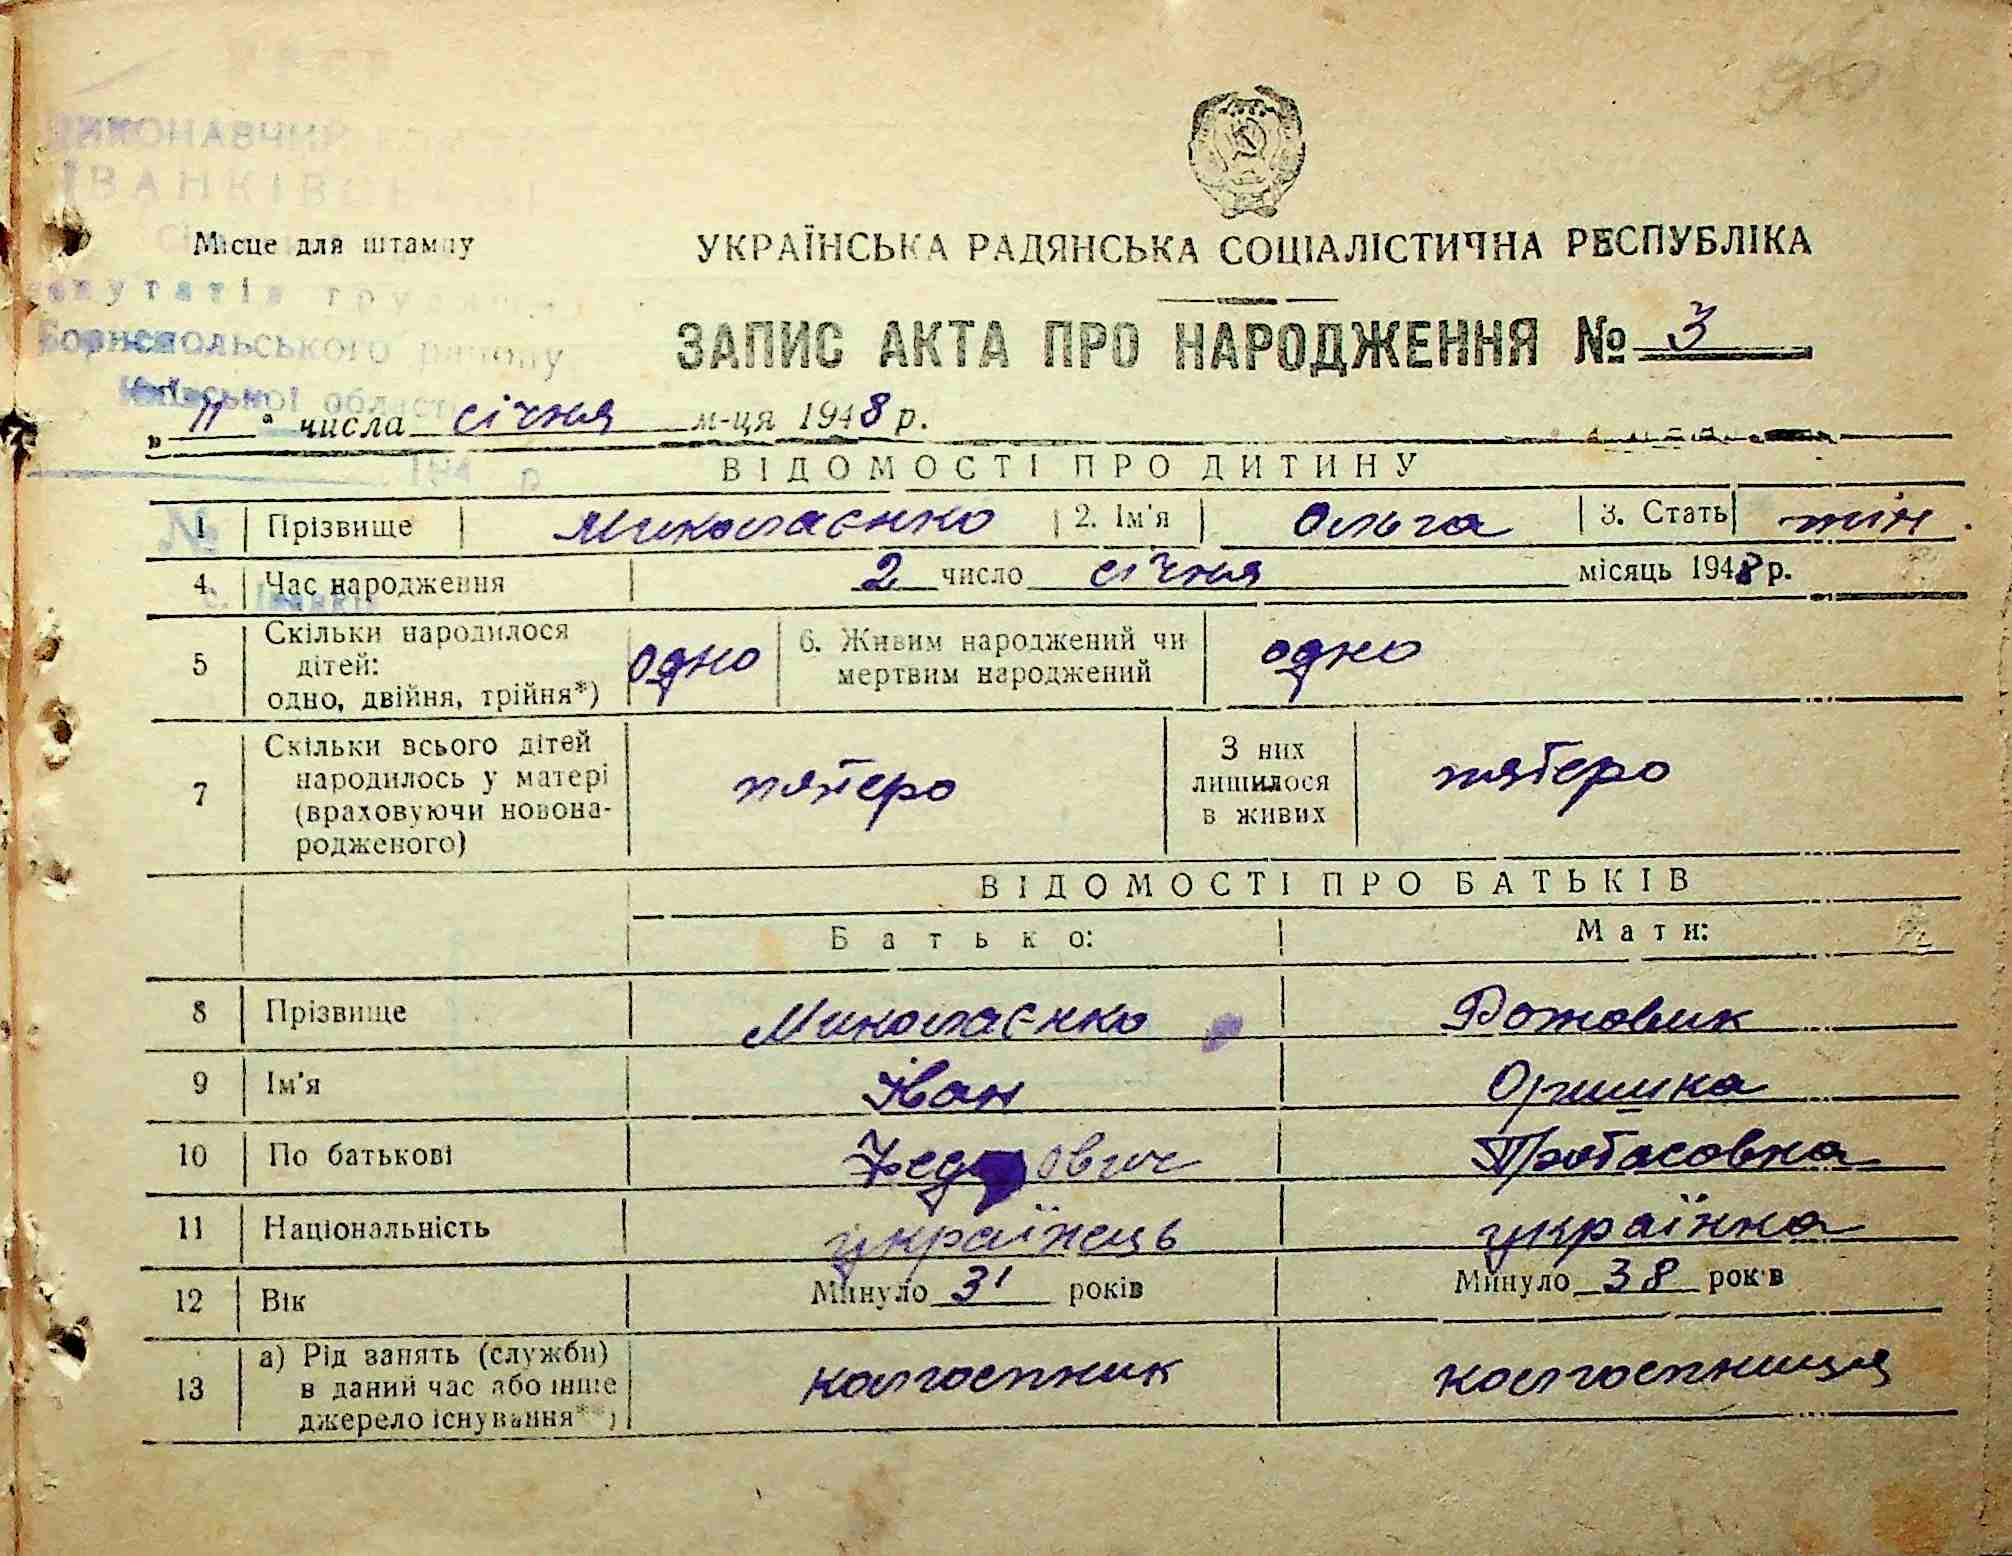 УРСР
ВИКОНАВЧИЙ
ІВАНКІВСЬКОЇ
Місце для штампу
депутатів трудящих
Бориспольського району
Київської області
194 р
№
с. Іванків
96
УКРАЇНСЬКА РАДЯНСЬКА СОЦІАЛІСТИЧНА РЕСПУБЛІКА
ЗАПИС АКТА ПРО НАРОДЖЕННЯ № 3
„ 11 " числа січня м-ця 1948 р.
ВІДОМОСТІ ПРО ДИТИНУ
1 Прізвище Миколаєнко 2. Ім'я Ольга 3. Стать жін.
4. Час народження 2 число січня місяць 1948 р.
5 Скільки народилося дітей: одно, двійня, трійня*) одно 6. Живим народжений чи мертвим народжений одно
7 Скільки всього дітей народилось у матері (враховуючи новонародженого) пятеро З них лишилося в живих пятеро
ВІДОМОСТІ ПРО БАТЬКІВ
Батько: Мати:
8 Прізвище Миколаєнко Рожовик
9 Ім'я Іван Оришка
10 По батькові Федорович
11 Національність українець українка
12 Вік Минуло 31 років Минуло 38 років
13 а) Рід занять (служби) в даний час або інше джерело існування**) колгоспник колгоспниця